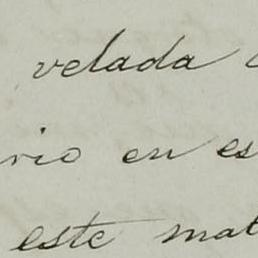 velada
rio en es
este mat